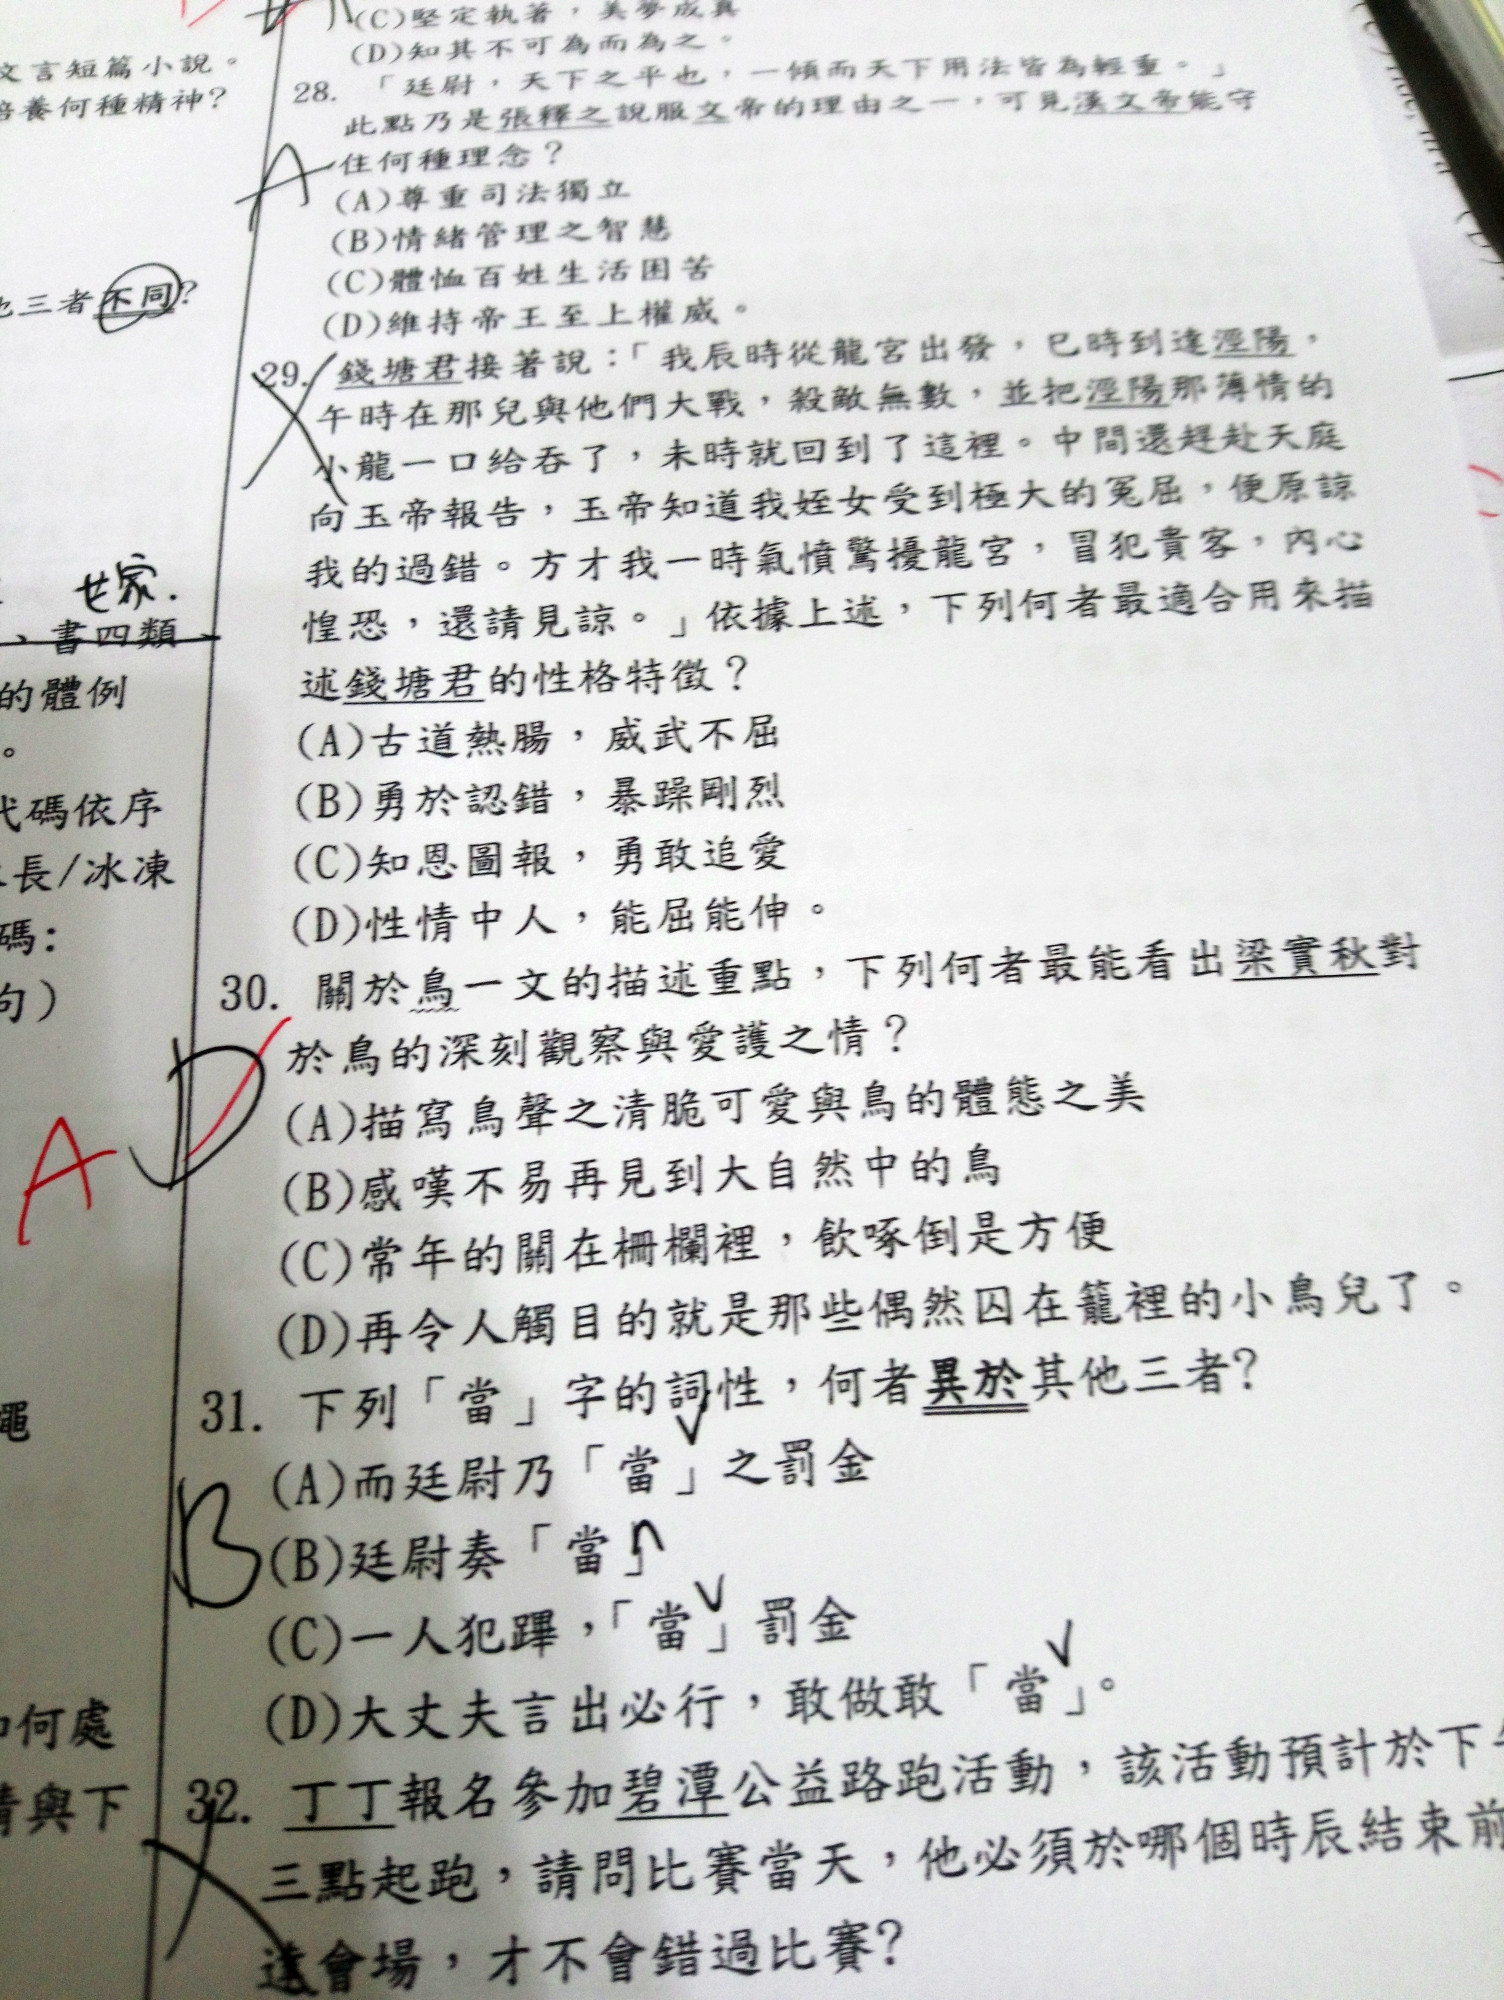 文言短篇小說。
培養何種精神?
三者不同?
世家.
、書四類、
的體例
。
代碼依序
長/冰凍
碼:
句)
繩
如何處
情與下
(C)堅定執著,美夢成真
(D)知其不可為而為之。
28. 「廷尉,天下之平也,一傾而天下用法皆為輕重。」
此點乃是張釋之說服文帝的理由之一,可見漢文帝能守
A
住何種理念?
(A)尊重司法獨立
(B)情緒管理之智慧
(C)體恤百姓生活困苦
(D)維持帝王至上權威。
29. 錢塘君接著說:「我辰時從龍宮出發,巳時到達涇陽,
午時在那兒與他們大戰,殺敵無數,並把涇陽那薄情的
小龍一口給吞了,未時就回到了這裡。中間還趕赴天庭
向玉帝報告,玉帝知道我姪女受到極大的冤屈,便原諒
我的過錯。方才我一時氣憤驚擾龍宮,冒犯貴客,內心
惶恐,還請見諒。」依據上述,下列何者最適合用來描
述錢塘君的性格特徵?
(A)古道熱腸,威武不屈
(B)勇於認錯,暴躁剛烈
(C)知恩圖報,勇敢追愛
(D)性情中人,能屈能伸。
30. 關於鳥一文的描述重點,下列何者最能看出梁實秋對
A D
於鳥的深刻觀察與愛護之情?
(A)描寫鳥聲之清脆可愛與鳥的體態之美
(B)感嘆不易再見到大自然中的鳥
(C)常年的關在柵欄裡,飲啄倒是方便
(D)再令人觸目的就是那些偶然囚在籠裡的小鳥兒了。
31. 下列「當」字的詞性,何者異於其他三者?
v
(A)而廷尉乃「當」之罰金
B
(B)廷尉奏「當」
n
v
(C)一人犯蹕,「當」罰金
v
(D)大丈夫言出必行,敢做敢「當」。
32. 丁丁報名參加碧潭公益路跑活動,該活動預計於下午
三點起跑,請問比賽當天,他必須於哪個時辰結束前
達會場,才不會錯過比賽?